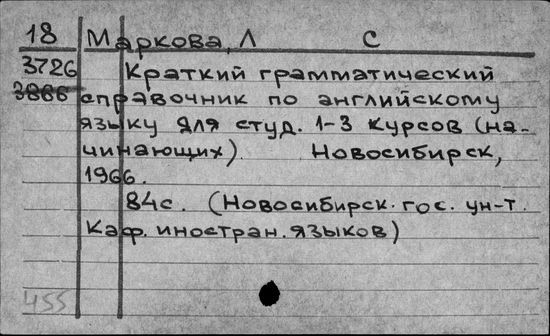 18 Маркова, Л С
3726 Краткий грамматический
3866 справочник по английскому
языку для студ. 1-3 курсов (на-
чинающих). Новосибирск,
1966.
84с. (Новосибирск. гос. ун-т.
Каф. иностран. языков)
455